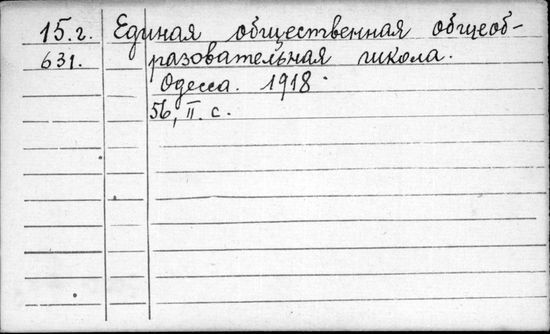 15.г. Единая общественная общеоб-
631. разовательная школа.
Одесса. 1918.
56, II. с.